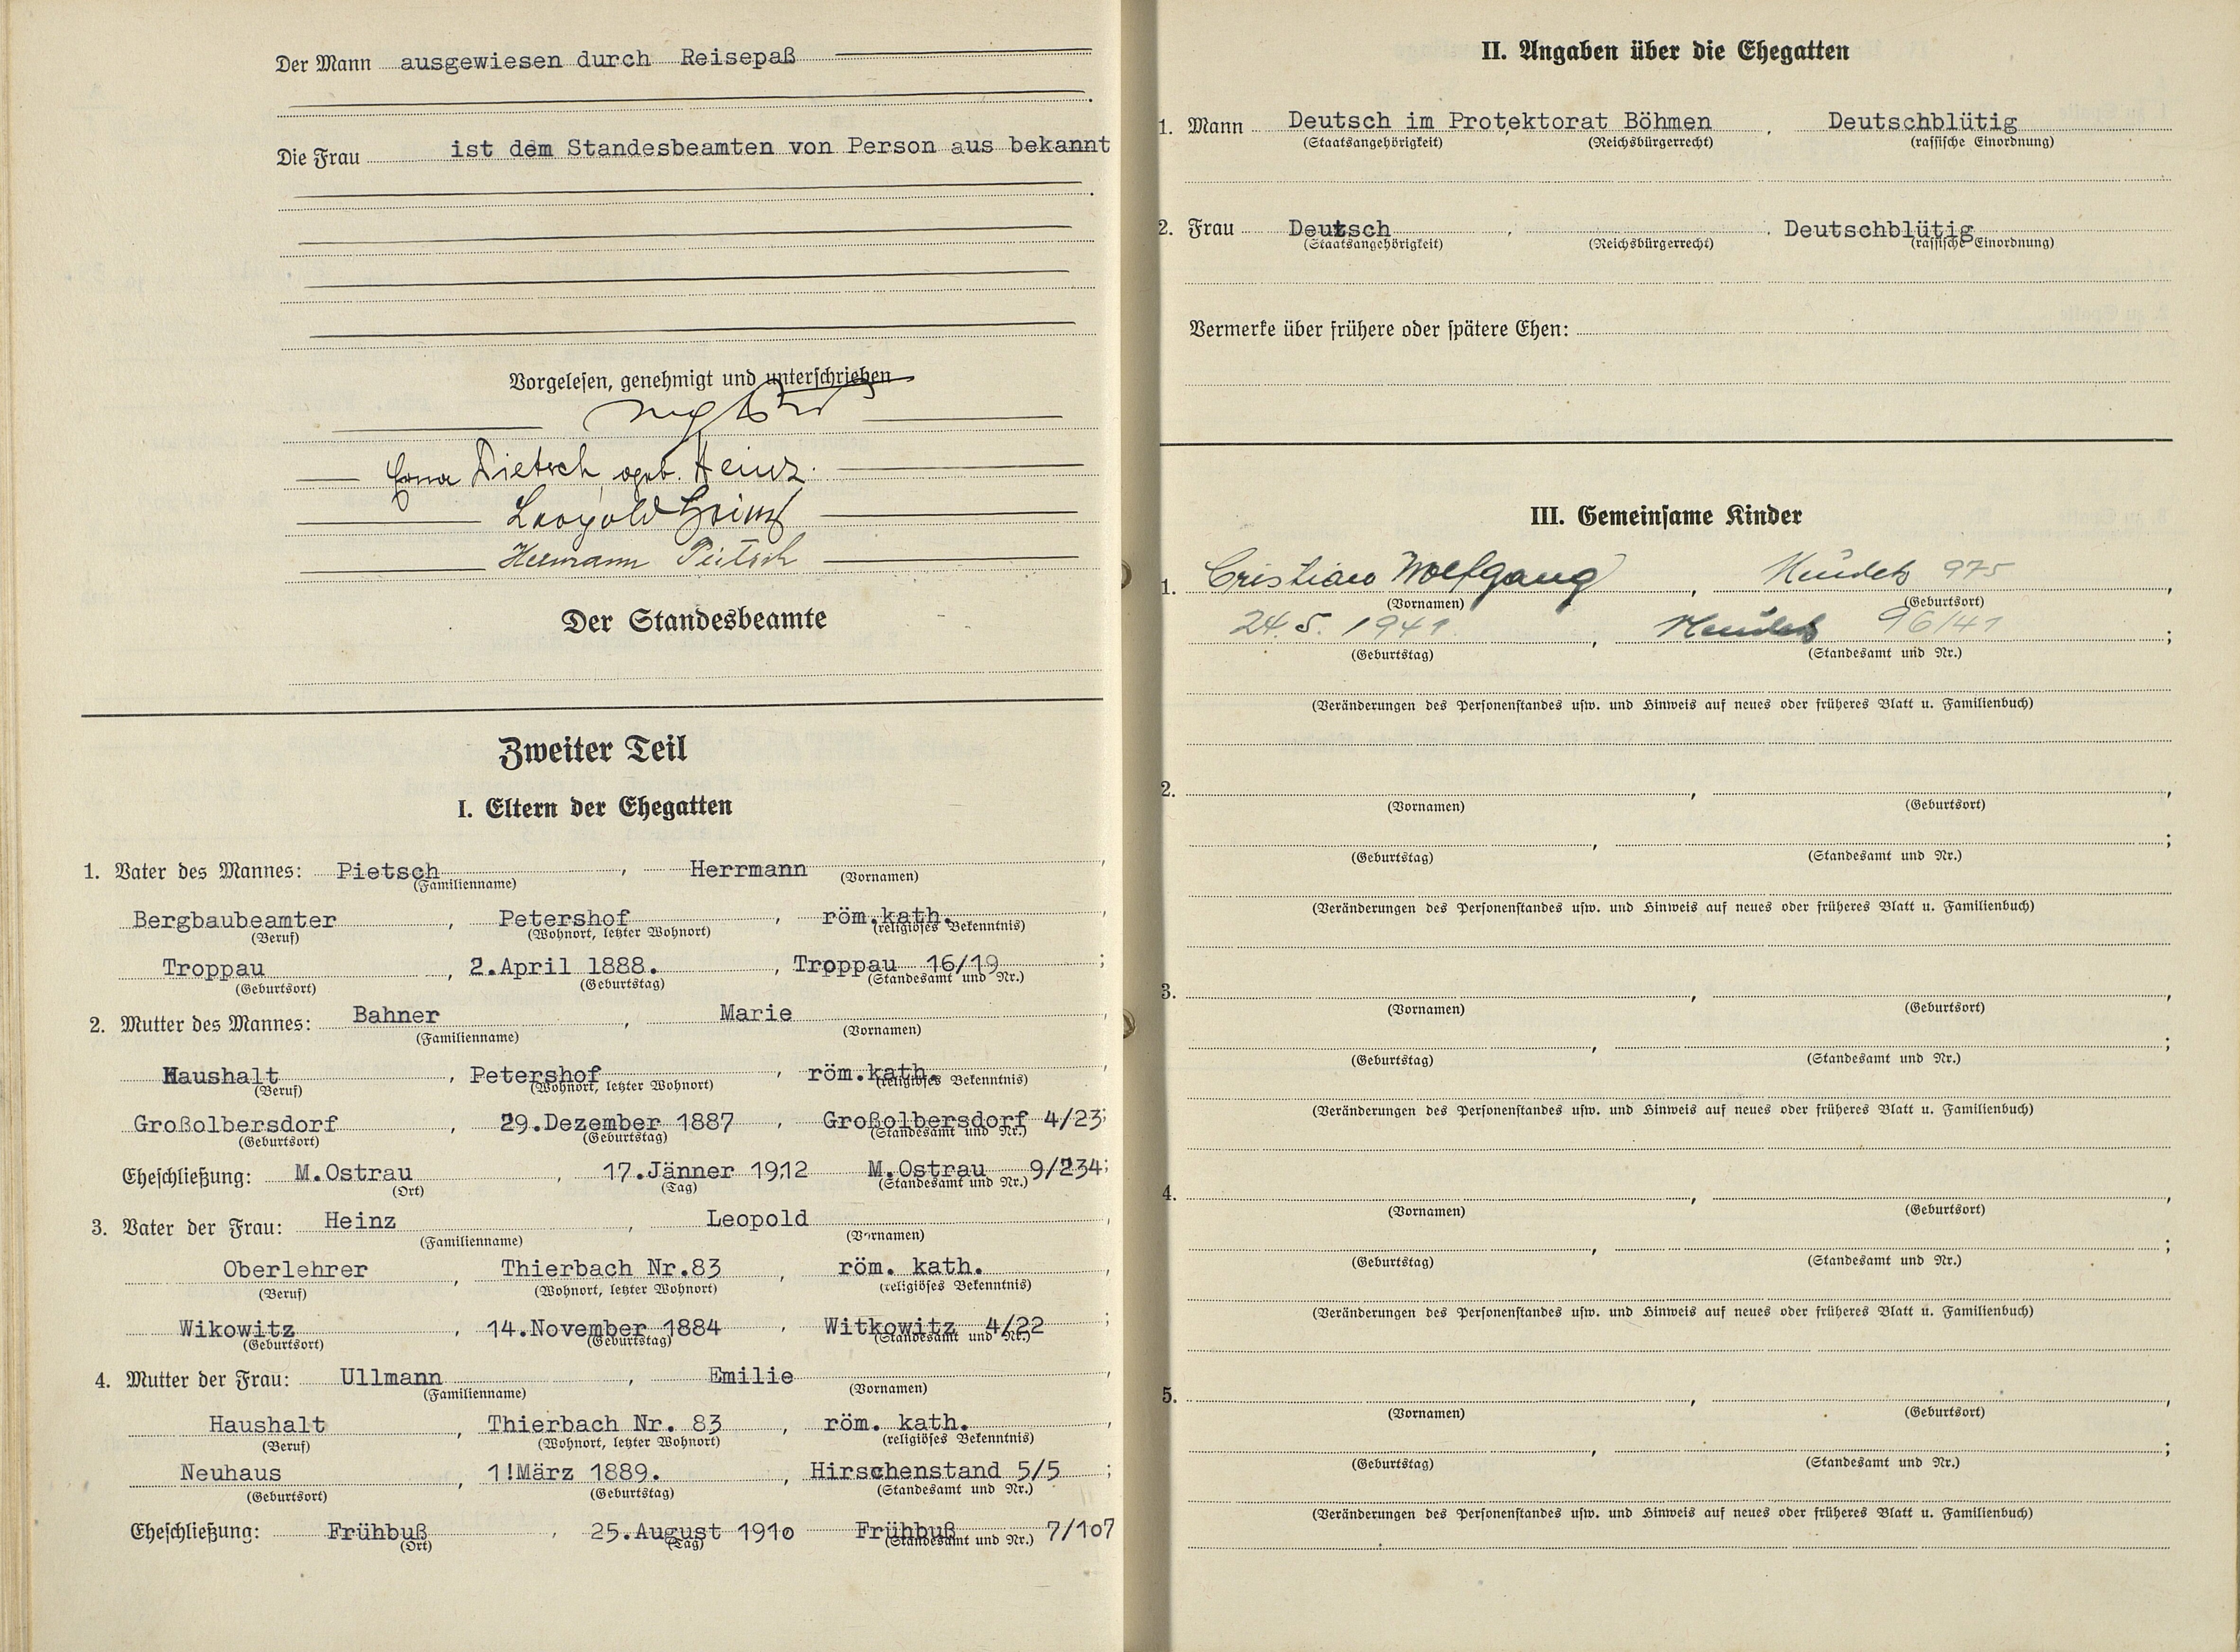 Der Mann ausgewiesen durch Reisepaß
Die Frau ist dem Standesbeamten von Person aus bekannt
Vorgelesen, genehmigt und unterschrieben
Erna Pietsch, geb. Heinz.
Leopold Heinz
Hermann Pietsch
Der Standesbeamte
Zweiter Teil
I. Eltern der Ehegatten
1. Vater des Mannes: Pietsch, Herrmann,
(Familienname) (Vornamen)
Bergbaubeamter, Petershof, röm.kath.,
(Beruf) (Wohnort, letzter Wohnort) (religiöses Bekenntnis)
Troppau, 2.April 1888., Troppau 16/19;
(Geburtsort) (Geburtstag) (Standesamt und Nr.)
2. Mutter des Mannes: Bahner, Marie,
(Familienname) (Vornamen)
Haushalt, Petershof, röm.kath.,
(Beruf) (Wohnort, letzter Wohnort) (religiöses Bekenntnis)
Großolbersdorf, 29.Dezember 1887, Großolbersdorf 4/23;
(Geburtsort) (Geburtstag) (Standesamt und Nr.)
Eheschließung: M.Ostrau, 17.Jänner 1912, M.Ostrau 9/234;
(Ort) (Tag) (Standesamt und Nr.)
3. Vater der Frau: Heinz, Leopold,
(Familienname) (Vornamen)
Oberlehrer, Thierbach Nr.83, röm. kath.,
(Beruf) (Wohnort, letzter Wohnort) (religiöses Bekenntnis)
Wikowitz, 14.November 1884, Witkowitz 4/22;
(Geburtsort) (Geburtstag) (Standesamt und Nr.)
4. Mutter der Frau: Ullmann, Emilie,
(Familienname) (Vornamen)
Haushalt, Thierbach Nr. 83, röm. kath.,
(Beruf) (Wohnort, letzter Wohnort) (religiöses Bekenntnis)
Neuhaus, 1!März 1889., Hirschenstand 5/5;
(Geburtsort) (Geburtstag) (Standesamt und Nr.)
Eheschließung: Frühbuß, 25.August 1910 Frühbuß 7/107
(Ort) (Tag) (Standesamt und Nr.)
II. Angaben über die Ehegatten
1. Mann Deutsch im Protektorat Böhmen, Deutschblütig
(Staatsangehörigkeit) (Reichsbürgerrecht) (rassische Einordnung)
2. Frau Deutsch, . Deutschblütig
(Staatsangehörigkeit) (Reichsbürgerrecht) (rassische Einordnung)
Vermerke über frühere oder spätere Ehen:
III. Gemeinsame Kinder
1. Cristian Wolfgang, Neudek 975,
(Vornamen) (Geburtsort)
24. 5. 1941, Neudek 96/41;
(Geburtstag) (Standesamt und Nr.)
(Veränderungen des Personenstandes usw. und Hinweis auf neues oder früheres Blatt u. Familienbuch)
2. , ,
(Vornamen) (Geburtsort)
, ;
(Geburtstag) (Standesamt und Nr.)
(Veränderungen des Personenstandes usw. und Hinweis auf neues oder früheres Blatt u. Familienbuch)
3. , ,
(Vornamen) (Geburtsort)
, ;
(Geburtstag) (Standesamt und Nr.)
(Veränderungen des Personenstandes usw. und Hinweis auf neues oder früheres Blatt u. Familienbuch)
4. , ,
(Vornamen) (Geburtsort)
, ;
(Geburtstag) (Standesamt und Nr.)
(Veränderungen des Personenstandes usw. und Hinweis auf neues oder früheres Blatt u. Familienbuch)
5. , ,
(Vornamen) (Geburtsort)
, ;
(Geburtstag) (Standesamt und Nr.)
(Veränderungen des Personenstandes usw. und Hinweis auf neues oder früheres Blatt u. Familienbuch)